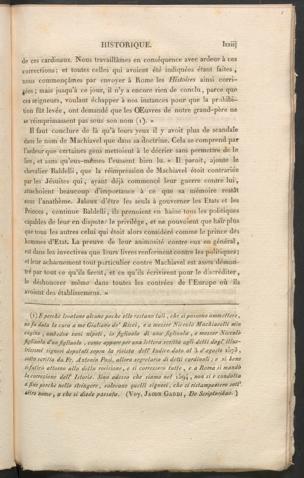 HISTORIQUE. lxxiij
de ces cardinaux. Nous travaillâmes en conséquence avec ardeur à ces
corrections; et toutes celles qui avoient été indiquées étant faites,
nous commençâmes par envoyer à Rome les Histoires ainsi corri-
gées; mais jusqu'à ce jour, il n'y a encore rien de conclu, parce que
ces seigneurs, voulant échapper à nos instances pour que la prohibi-
tion fût levée, ont demandé que les Œuvres de notre grand-père ne
se réimprimassent pas sous son nom (1). »
Il faut conclure de là qu'à leurs yeux il y avoit plus de scandale
dans le nom de Machiavel que dans sa doctrine. Cela se comprend par
l'ardeur que certaines gens mettoient à le décrier sans permettre de le
lire, et sans qu'eux-mêmes l'eussent bien lu. « Il paroît, ajoute le
chevalier Baldelli, que la réimpression de Machiavel étoit contrariée
par les Jésuites qui, ayant déjà commencé leur guerre contre lui,
attachoient beaucoup d'importance à ce que sa mémoire restât
sous l'anathème. Jaloux d'être les seuls à gouverner les Etats et les
Princes, continue Baldelli, ils prenoient en haine tous les politiques
capables de leur en disputer le privilége, et ne pouvoient que haïr plus
que tous les autres celui qui étoit alors considéré comme le prince des
hommes d'Etat. La preuve de leur animosité contre eux en général,
est dans les invectives que leurs livres renferment contre les politiques;
et leur acharnement tout particulier contre Machiavel est assez démon-
tré par tout ce qu'ils firent, et ce qu'ils écrivirent pour le discréditer,
le déshonorer même dans toutes les contrées de l'Europe où ils
avoient des établissemens. »
(1) E perchè levatone alcune poche elle restano tali, che si possono ammettere,
ne fu data la cura a me Giuliano de' Ricci, e a messer Niccolò Machiavelli mio
cugino, ambedue suoi nipoti, io figliuolo di una figliuola, e messer Niccolò
figliuolo d'un figliuolo, come appare per una lettera scritta agli detti degl' illus-
trissimi signori deputati sopra la rivista dell' Indice dato al 3 d'agosto 1573,
sotto scritta da Fr. Antonio Posi, allora segretario di detti cardinali; e si bene
si faticò attorno alla detta revisione, e si corressero tutte, e a Roma si mandò
la correzione dell' Istorie. Sino adesso che siamo nel 1594, non si è condotta
a fine perchè nello stringere, volevano quelli signori, che si ristampassero sott'
altro nome, a che si diede passata. (Voy. JACOB GADDI, De Scriptoribus.)